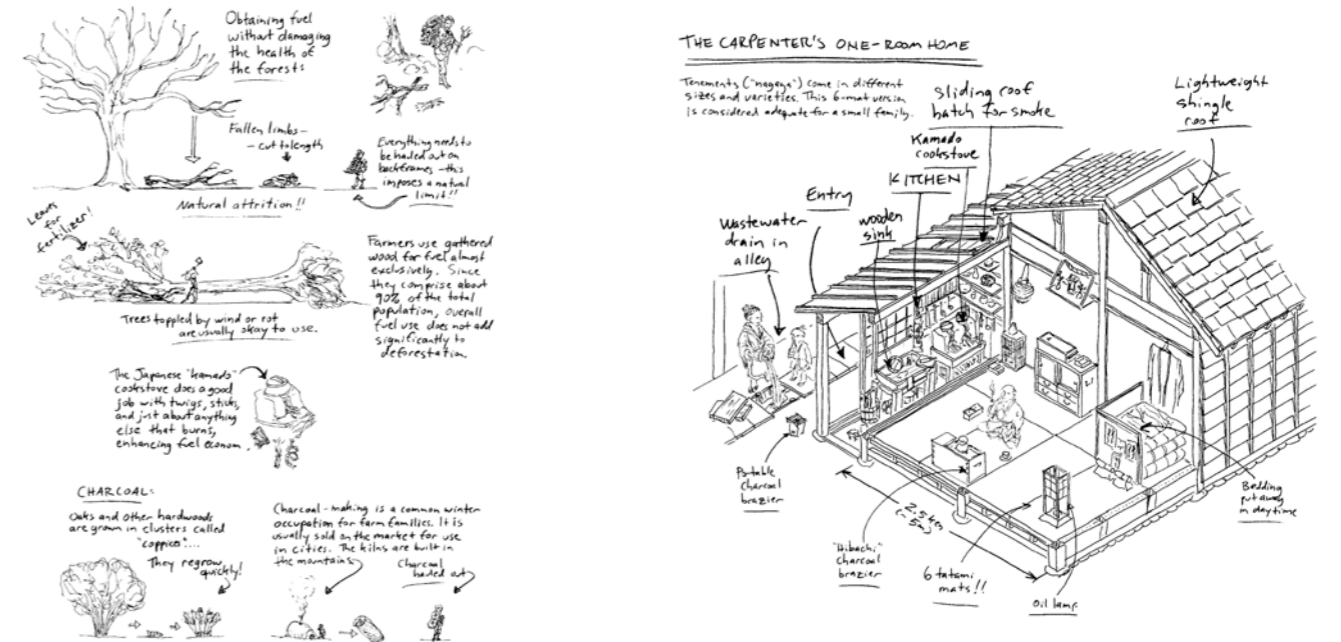 Obtaining fuel
without damaging
the health of
the forest:
Fallen limbs–
– cut to length
Everything needs to
be hauled out on
backframes – this
imposes a natural
limit!!
Natural attrition!!
Leaves
for
fertilizer!
Farmers use gathered
wood for fuel almost
exclusively. Since
they comprise about
90% of the total
population, overall
fuel use does not add
significantly to
deforestation.
Trees toppled by wind or rot
are usually okay to use.
The Japanese "kamado"
cookstove does a good
job with twigs, sticks,
and just about anything
else that burns,
enhancing fuel econom.
CHARCOAL:
Oaks and other hardwoods
are grown in clusters called
"coppices"....
They regrow
quickly!
Charcoal-making is a common winter
occupation for farm families. It is
usually sold on the market for use
in cities. The kilns are built in
the mountains.
Charcoal
hauled out
THE CARPENTER'S ONE-ROOM HOME
Tenements ("nagaya") come in different
sizes and varieties. This 6-mat version
is considered adequate for a small family.
Sliding roof
hatch for smoke
Lightweight
shingle
roof
Kamado
cookstove
KITCHEN
Entry
wooden
sink
Wastewater
drain in
alley
Portable
Charcoal
brazier
2.5 ken
(~5m)
"Hibachi"
charcoal
brazier
6 tatami
mats!!
Oil lamp
Bedding
put away
in daytime